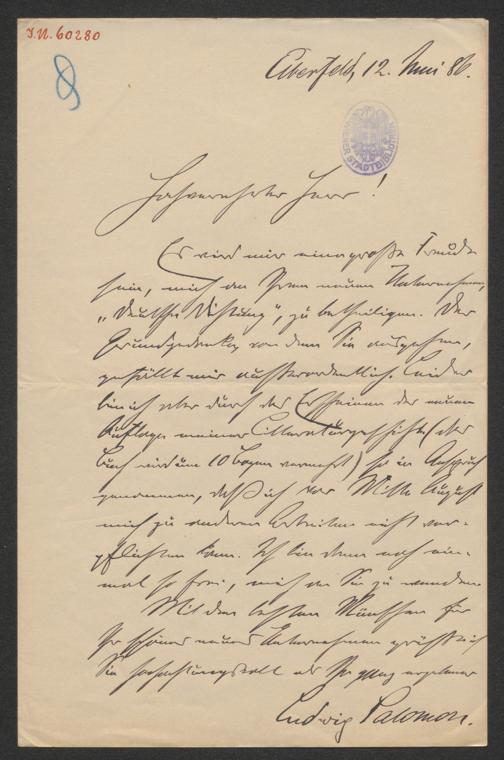 J.N. 60280
Elberfeld, 12. Juni 86.
WIENER STADTBIBLIOTHEK
Hochverehrter Herr!
Es wird mir eine große Freude
sein, mich an Ihrem neuen Unternehmen,
„Deutsche Dichtung“, zu betheiligen. Der
Grundgedanke, von dem Sie ausgehen,
gefällt mir außerordentlich. Leider
bin ich aber durch das Erscheinen der neuen
Auflage meiner Litteraturgeschichte (das
Buch wird um 10 Bogen vermehrt) so in Anspruch
genommen, daß ich vor Mitte August
mich zu anderen Arbeiten nicht ver-
pflichten kann. Ich bin dann noch ein-
mal so frei, mich an Sie zu wenden.
Mit den besten Wünschen für
Ihr schönes neues Unternehmen grüßt
Sie hochachtungsvoll als Ihr ganz ergebener
Ludwig Salomon.